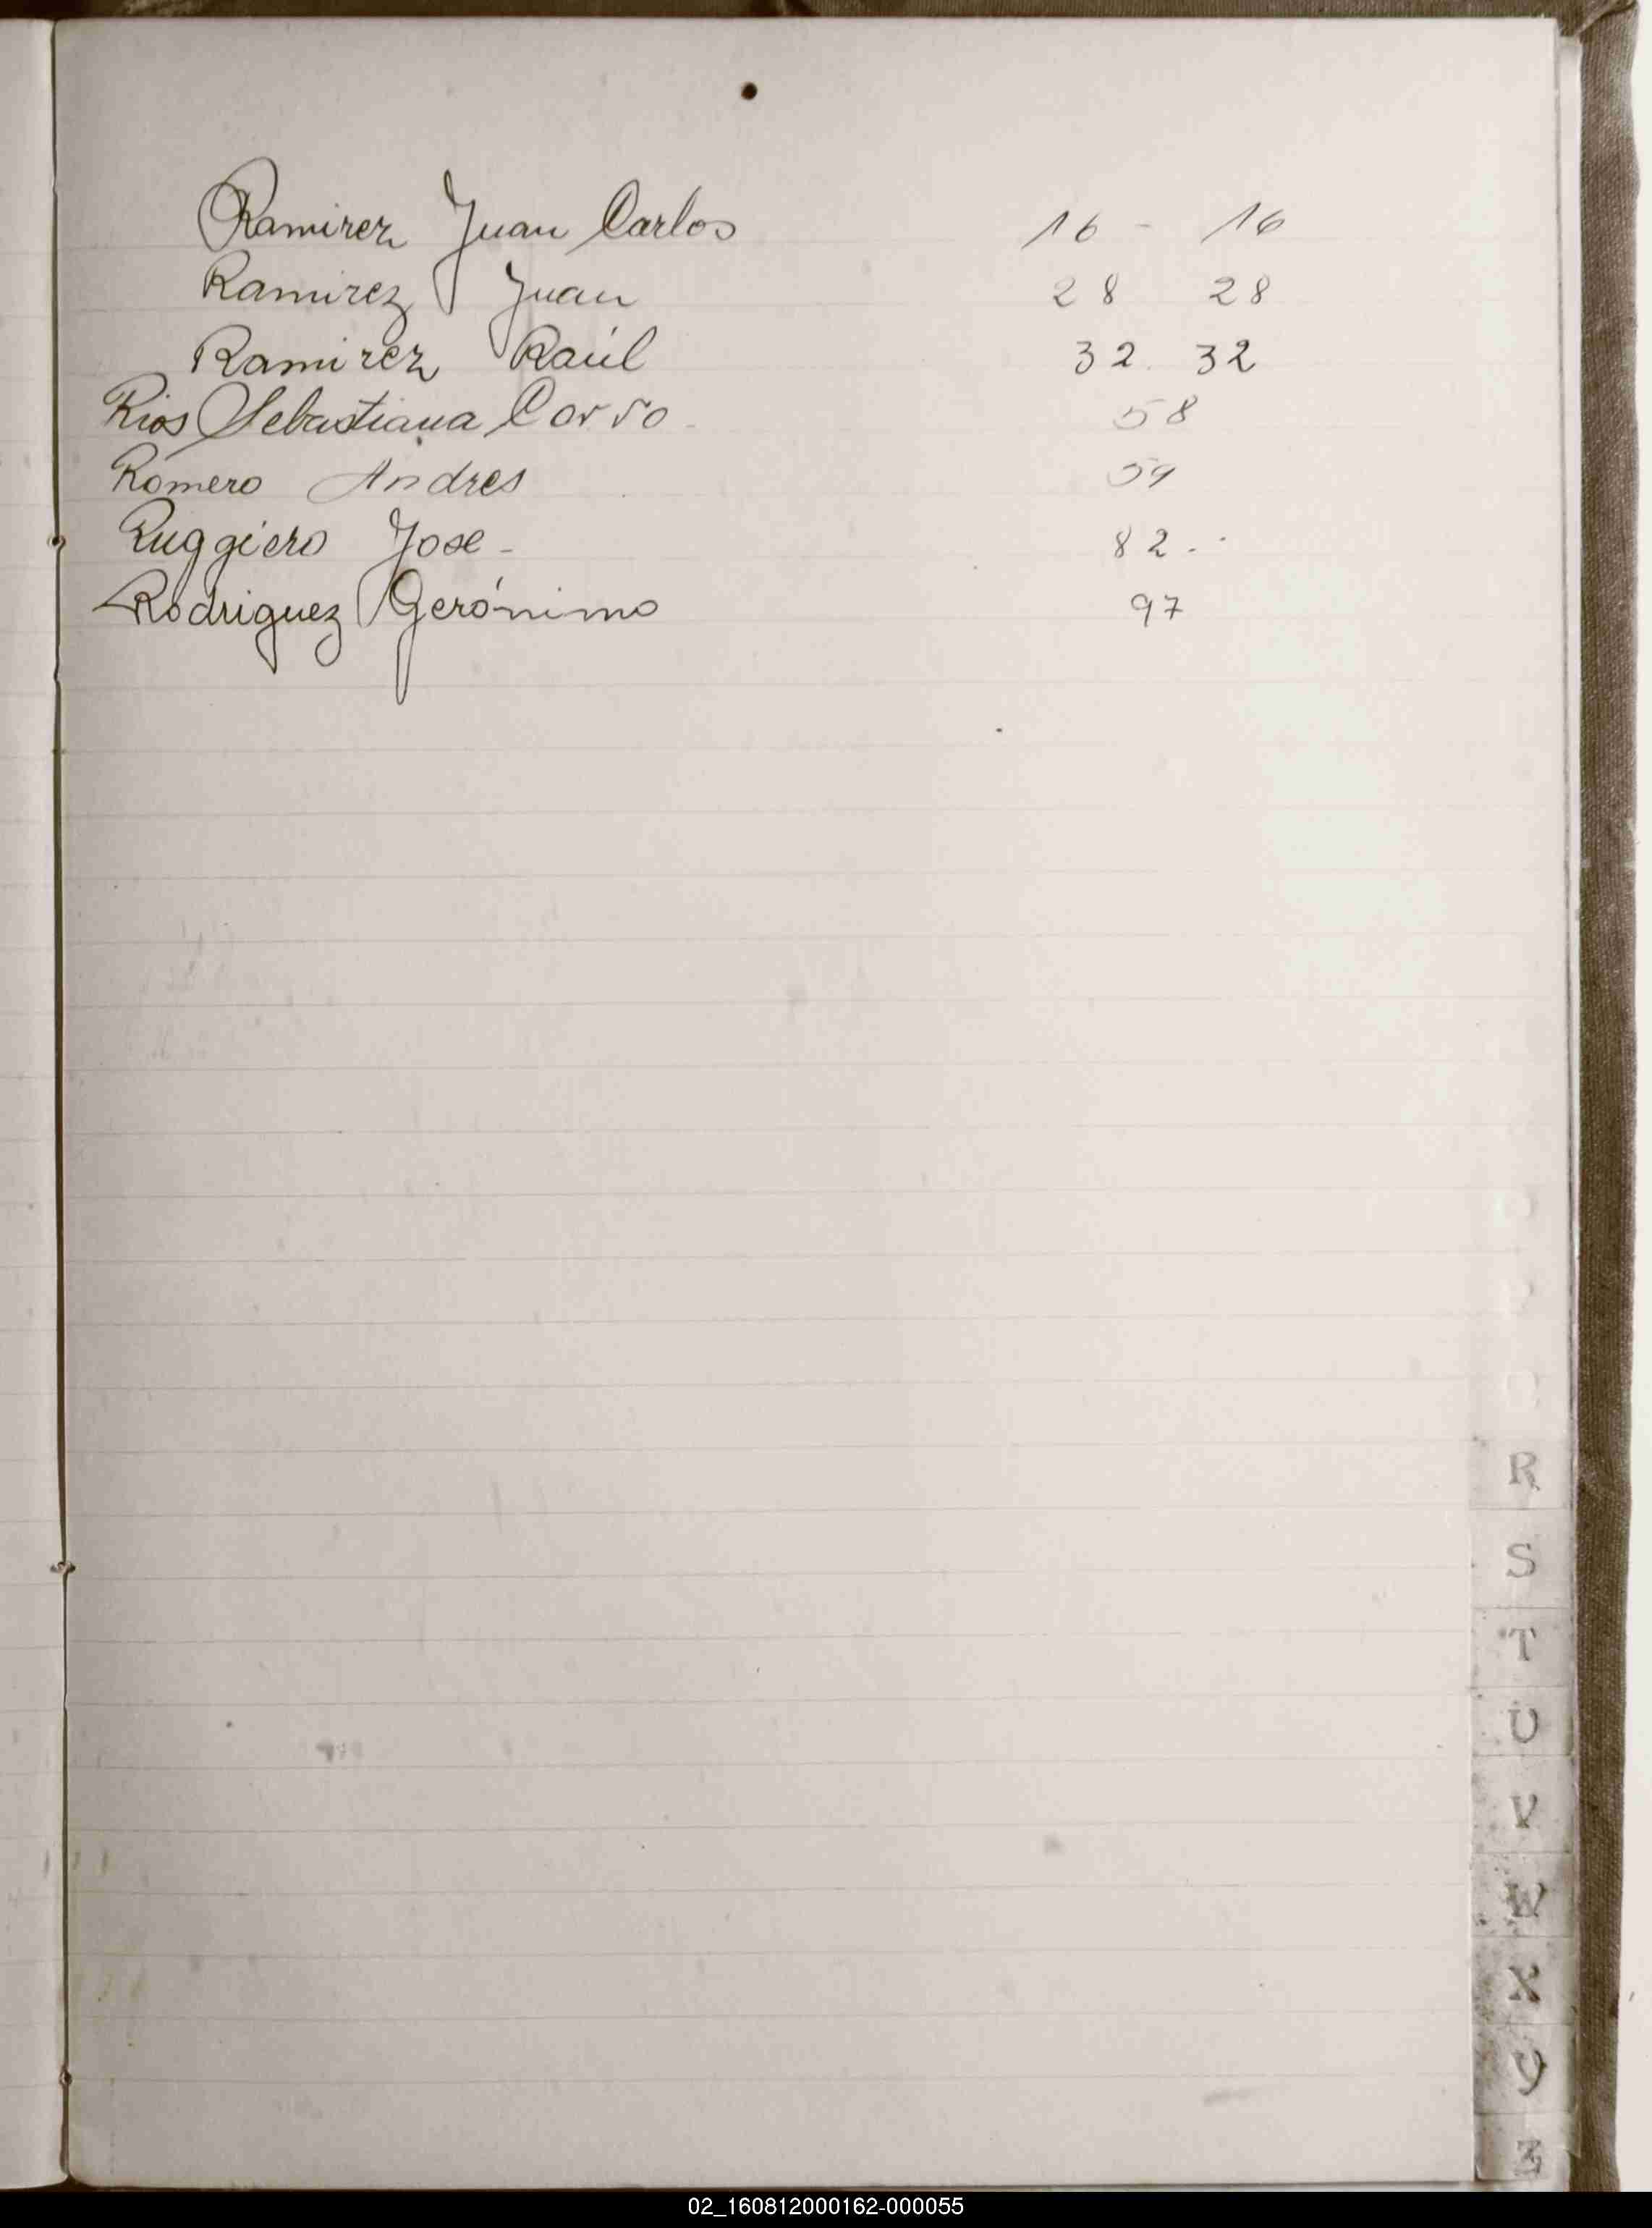 Ramirez Juan Carlos 16 - 16
Ramirez Juan 28 28
Ramirez Raúl 32. 32
Rios Sebastiana Corso 58
Romero Andres 59
Ruggiero Jose - 82 -
Rodriguez Gerónimo 97
R
S
T
U
V
W
X
Y
Z
02_160812000162-000055